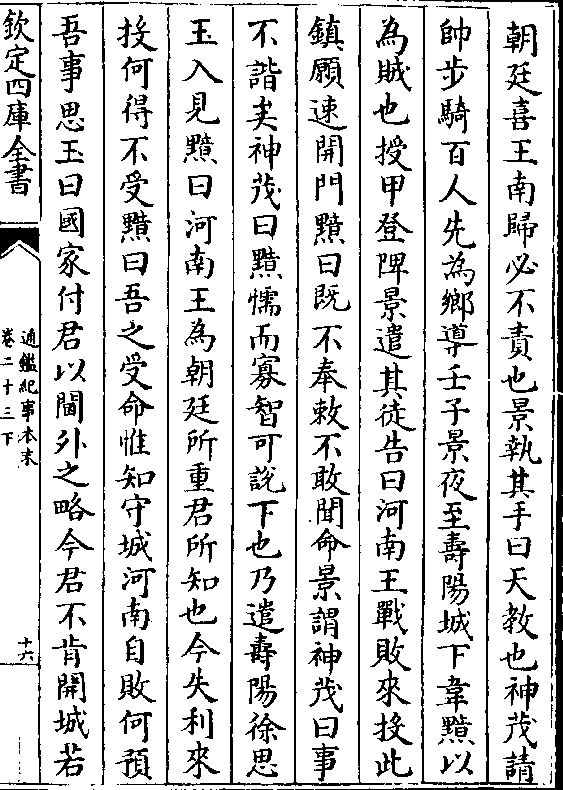 朝廷喜王南歸必不責也景執其手曰天教也神茂請
帥步騎百人先為鄉導壬子景夜至壽陽城下韋黯以
為賊也授甲登陴景遣其徒告曰河南王戰敗來投此
鎮願速開門黯曰既不奉敕不敢聞命景謂神茂曰事
不諧矣神茂曰黯懦而寡智可說下也乃遣壽陽徐思
玉入見黯曰河南王為朝廷所重君所知也今失利來
投何得不受黯曰吾之受命惟知守城河南自敗何預
吾事思玉曰國家付君以閫外之略今君不肯開城若
欽定四庫全書
通鑑紀事本末
卷二十三下
十六